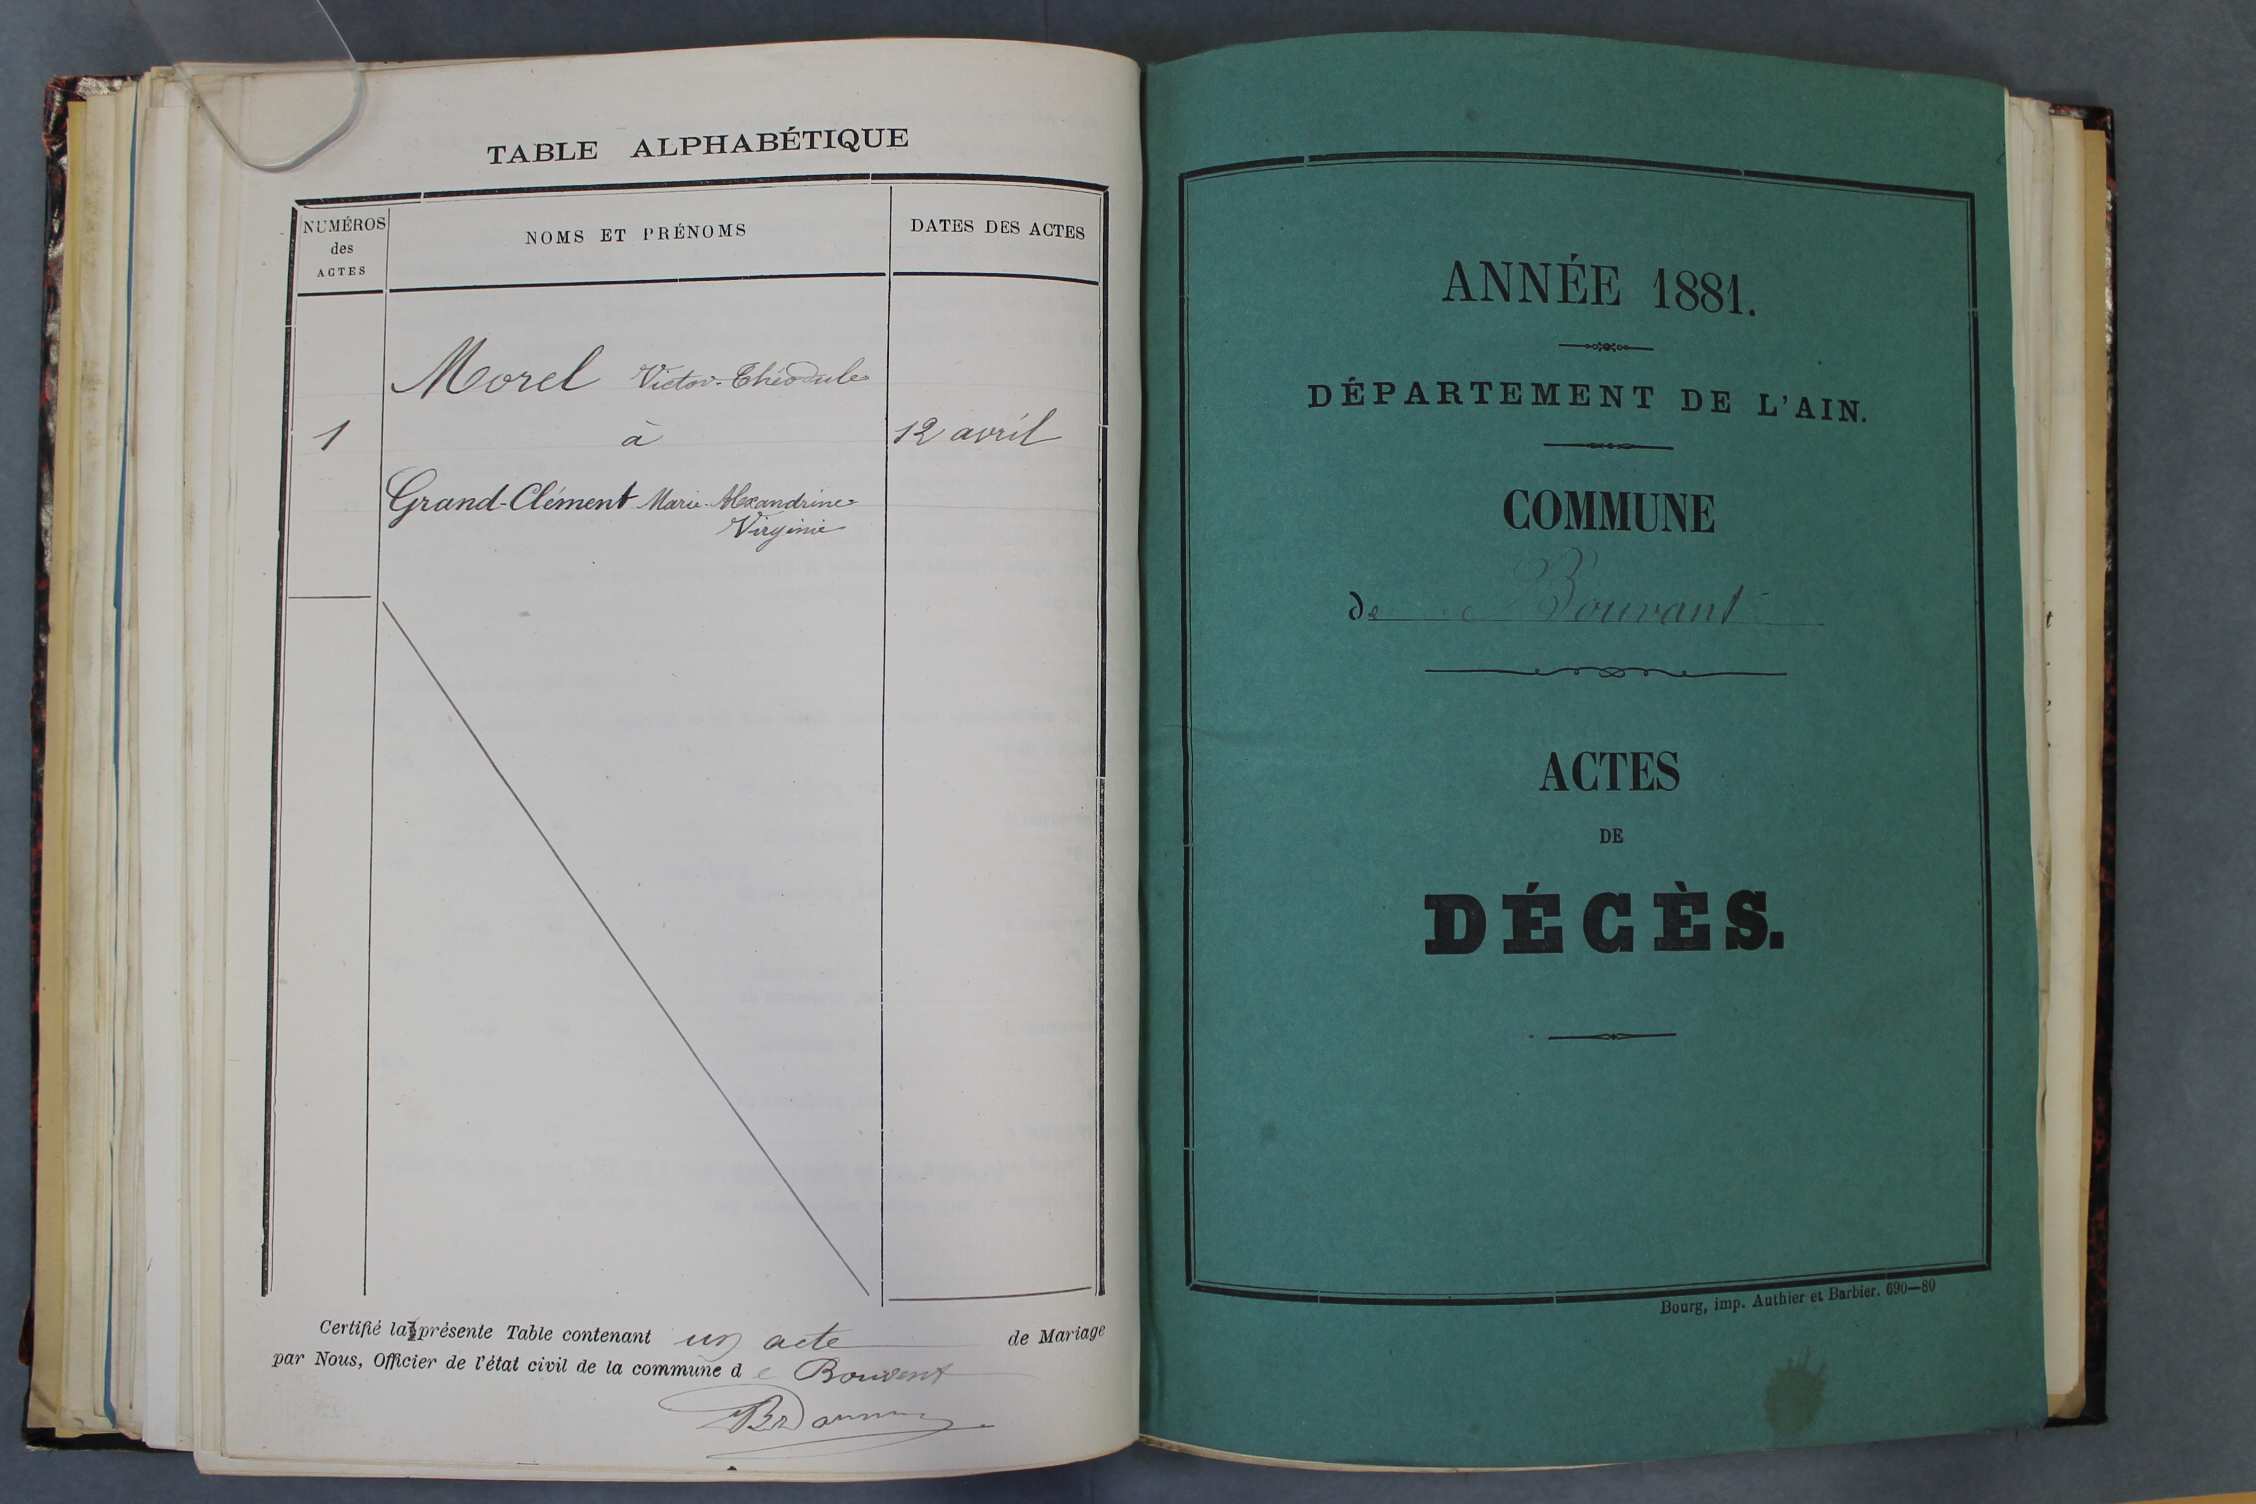 TABLE ALPHABÉTIQUE
NUMÉROS
des
ACTES
NOMS ET PRÉNOMS
DATES DES ACTES
Morel Victor-Théodule
1
à
12 avril
Grand-Clément Marie-Alexandrine-
Virginie
Certifié la présente Table contenant un acte de Mariage
par Nous, Officier de l'état civil de la commune de Bouvent
ANNÉE 1881.
DÉPARTEMENT DE L'AIN.
COMMUNE
de
ACTES
DE
DÉCÈS.
Bourg, imp. Authier et Barbier. 690—80